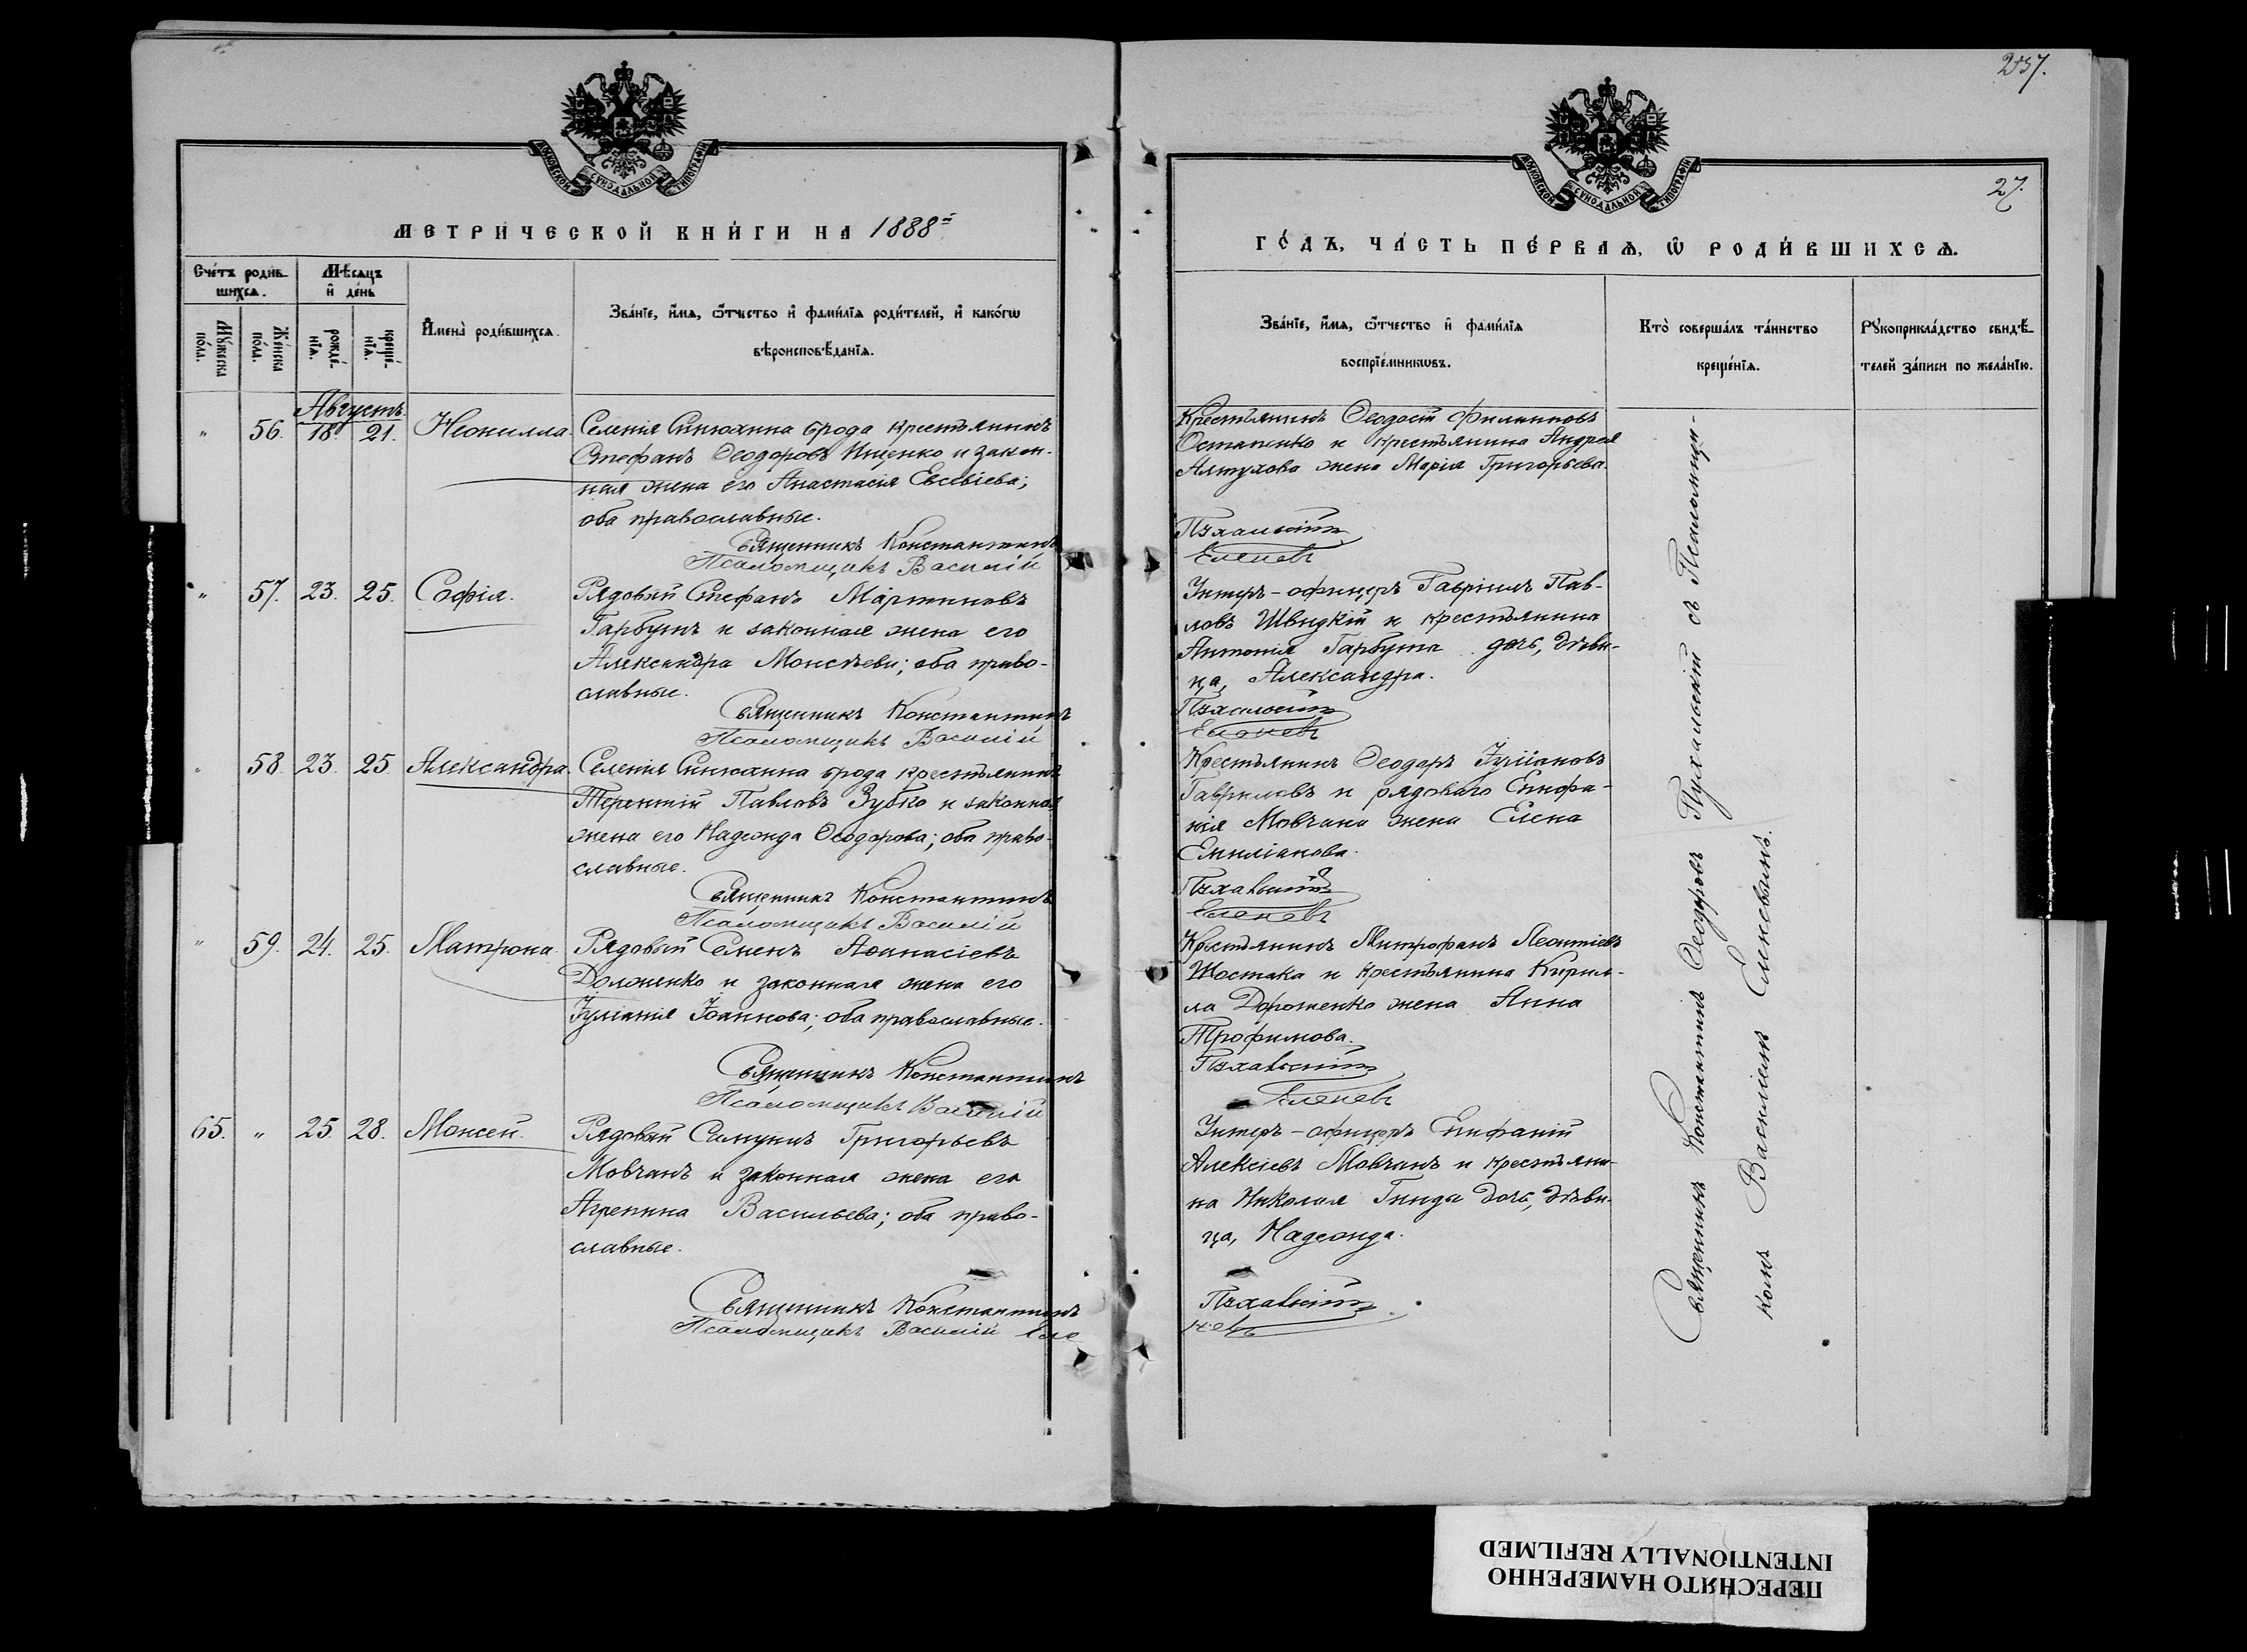 257.
МОСКОВСКОЙ СѴНОДАЛЬНОЙ ТИПОГРАФІИ
МЕТРИ́ЧЕСКОЙ КНИ́ГИ НА 1888й
Сче́тъ роди́в-
шихсѧ.
Мѣ́сѧцъ
и҆ де́нь
Мꙋ́жеска
по́ла.
Же́нска
по́ла.
рожде́-
нїѧ.
креще́-
нїѧ.
И҆мена̀ роди́вшихсѧ.
Зва́нїе, и҆́мѧ, ѻ҆́тчество и҆ фами́лїѧ роди́телей, и҆ како́гѡ
вѣроисповѣ́данїѧ.
Августъ.
" 56. 18 21. Неонилла.
Селенія Синюхина брода крестьянинъ
Стефанъ Ѳеодоровъ Ищенко и закон-
ная жена его Анастасія Евсевіева;
оба православные.
Священникъ Константинъ
Псаломщикъ Василій
" 57. 23. 25. Софія.
Рядовый Стефанъ Мартиновъ
Гарбузъ и законная жена его
Александра Моисѣева; оба право-
славные.
Священникъ Константинъ
Псаломщикъ Василій
" 58. 23. 25. Александра.
Селенія Синюхина брода крестьянинъ
Терентій Павловъ Зубко и законная
жена его Надежда Ѳеодорова; оба право-
славные.
Священникъ Константинъ
Псаломщикъ Василій
" 59. 24. 25. Матрона.
Рядовый Семенъ Аѳанасіевъ
Долженко и законная жена его
Іуліанія Іоаннова; оба православные.
Священникъ Константинъ
Псаломщикъ Василій
65. " 25. 28. Моисей.
Рядовый Самуилъ Григорьевъ
Мовчанъ и законная жена его
Агрепина Васильева; оба право-
славные.
Священникъ Константинъ
Псаломщикъ Василій Еле
МОСКОВСКОЙ СѴНОДАЛЬНОЙ ТИПОГРАФІИ
27.
ГО́ДЪ, ЧА́СТЬ ПЕ́РВАѦ, Ѡ҆ РОДИ́ВШИХСѦ.
Зва́нїе, и҆́мѧ, ѻ҆́тчество и҆ фами́лїѧ
воспрїе́мникѡвъ.
Кто̀ соверша́лъ та́инство
креще́нїѧ.
Рꙋкоприкла́дство свидѣ́-
телей за́писи по жела́нїю.
Крестьянинъ Ѳеодосій Филиповъ
Остапенко и крестьянина Андрея
Алтухова жена Марія Григорьева.
Пухальскій
Еленевъ
Унтеръ-офицеръ Гавріилъ Пав-
ловъ Швидкій и крестьянина
Антонія Гарбуза дочь, дѣви-
ца, Александра.
Пухальскій
Еленевъ
Крестьянинъ Ѳеодоръ Іуліановъ
Гавриловъ и рядоваго Епифа-
нія Мовчана жена Елена
Емиліанова.
Пухальскій
Еленевъ
Крестьянинъ Митрофанъ Леонтіевъ
Шостака и крестьянина Кирил-
ла Дороженко жена Анна
Трофимова.
Пухальскій
Еленевъ
Унтеръ-офицеръ Епифаній
Алексіевъ Мовчанъ и крестьяни-
на Николая Гинды дочь, дѣви-
ца, Надежда.
Пухальскій
невъ
Священникъ Константинъ Ѳеодоровъ Пухальскій съ Псаломщи-
комъ Василіемъ Еленевымъ.
ПЕРЕСНЯТО НАМЕРЕННО
INTENTIONALLY REFILMED